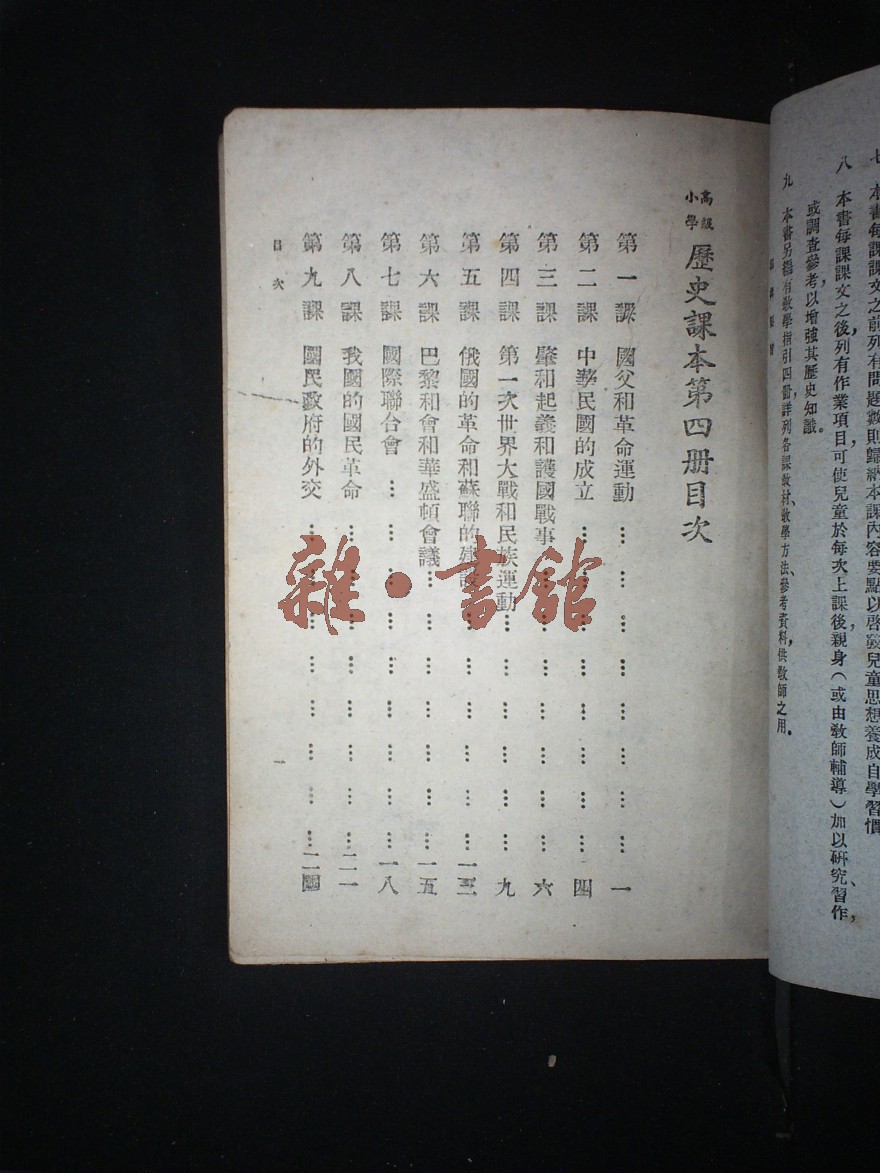 七 本書每課課文之前列有問題數則歸納本課內容要點以啓發兒童思想養成自學習慣
八 本書每課課文之後列有作業項目可使兒童於每次上課後親身(或由教師輔導)加以研究、習作,
或調查參考,以增強其歷史知識。
九 本書另編有教學指引四冊,詳列各課教材、教學方法、參考資料,供教師之用。
高級小學 歷史課本第四册目次
第一課 國父和革命運動 … … … … … … … … 一
第二課 中華民國的成立 … … … … … … … … 四
第三課 肇和起義和護國戰事 … … … … … … … 六
第四課 第一次世界大戰和民族運動 … … … … … … 九
第五課 俄國的革命和蘇聯的建設 … … … … … … 一三
第六課 巴黎和會和華盛頓會議 … … … … … … … 一五
第七課 國際聯合會 … … … … … … … … … 一八
第八課 我國的國民革命 … … … … … … … … 二一
第九課 國民政府的外交 … … … … … … … … 二四
目次
一
雜·書館